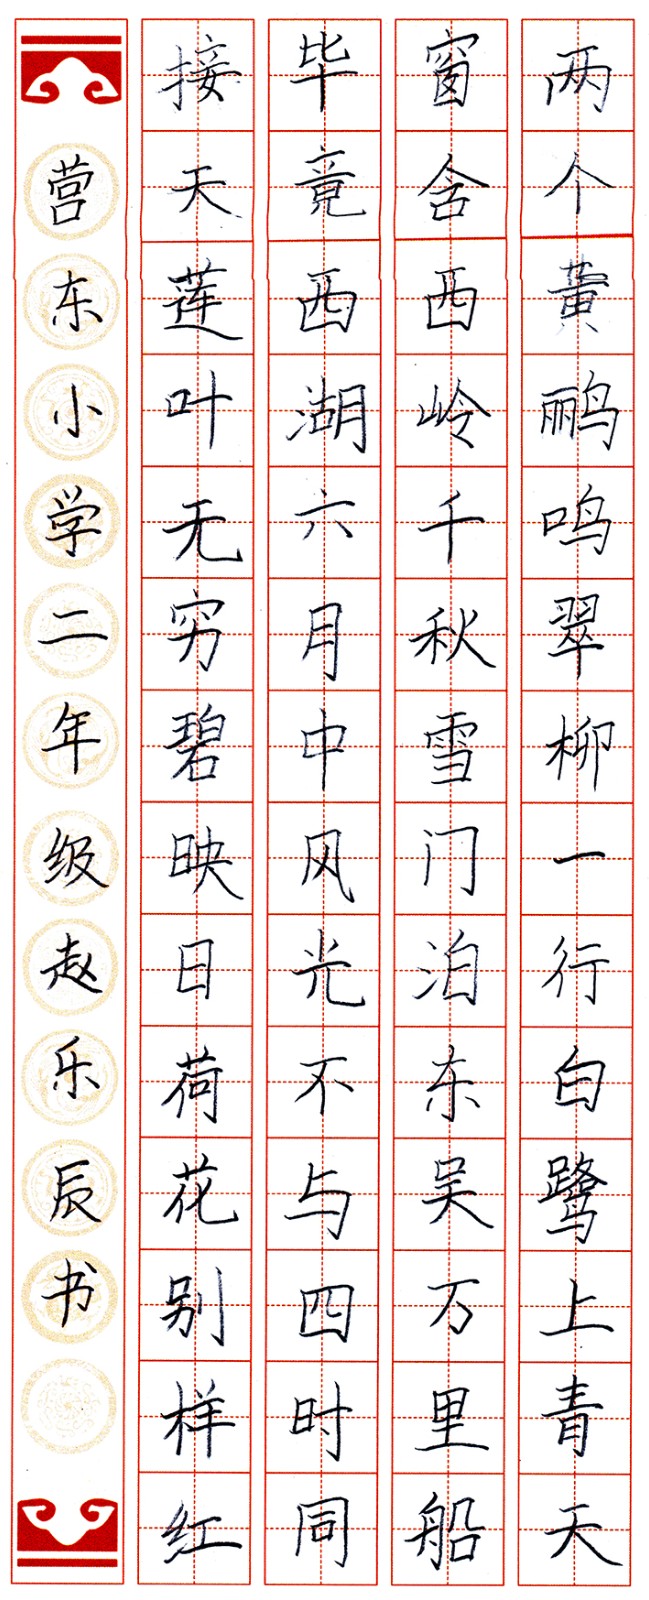 两个黄鹂鸣翠柳一行白鹭上青天
窗含西岭千秋雪门泊东吴万里船
毕竟西湖六月中风光不与四时同
接天莲叶无穷碧映日荷花别样红
营东小学二年级赵乐辰书